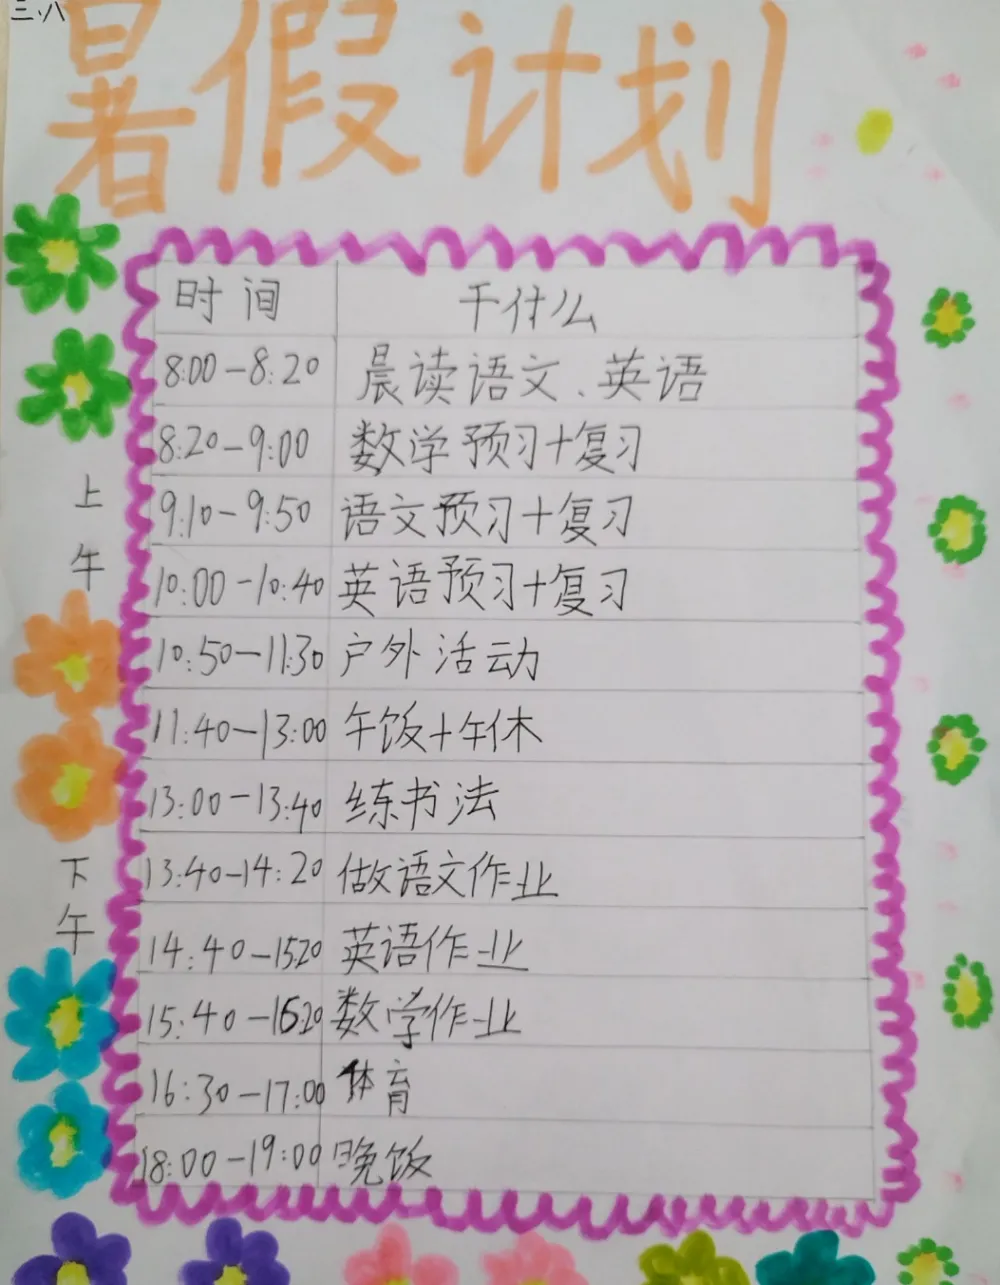 三.八
暑假计划
时间 干什么
8:00-8:20 晨读语文、英语
8:20-9:00 数学预习+复习
上午
9:10-9:50 语文预习+复习
10:00-10:40 英语预习+复习
10:50-11:30 户外活动
11:40-13:00 午饭+午休
13:00-13:40 练书法
下午
13:40-14:20 做语文作业
14:40-15:20 英语作业
15:40-16:20 数学作业
16:30-17:00 体育
18:00-19:00 晚饭